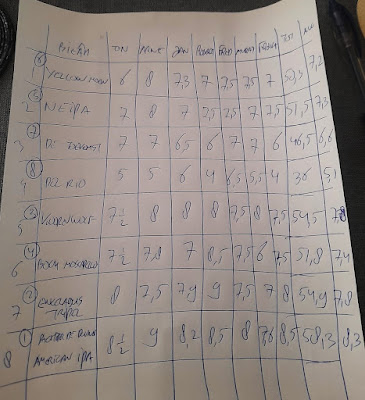 BIEREN TON NINE JAN ROBERT FRED MARTI TOT AVE
⑥ 1 YELLOW MOON 6 8 7,3 7 7,5 7,5 7 50,3 7,2
⑤ 2 NEIPA 7 8 7 7,5 7,5 7 7,5 51,5 7,3
⑦ 3 7 7 6,5 6 7 7 6 46,5 6,6
⑧ 4 DEL RIO 5 5 6 4 6,5 5,5 4 36 5,1
③ 5 VUURWOLF 7½ 8 8 8 7,5 8 7,5 54,5 7,8
④ 6 BOCK 7½ 7,8 7 8,5 7,5 6 7,5 51,8 7,4
② 7 8 7,5 7,9 9 7,5 7 8 54,9 7,8
TRIPEL
① 8 8½ 9 8,2 8,5 8 7,6 8,5 58,3 8,3
AMERICAN IPA